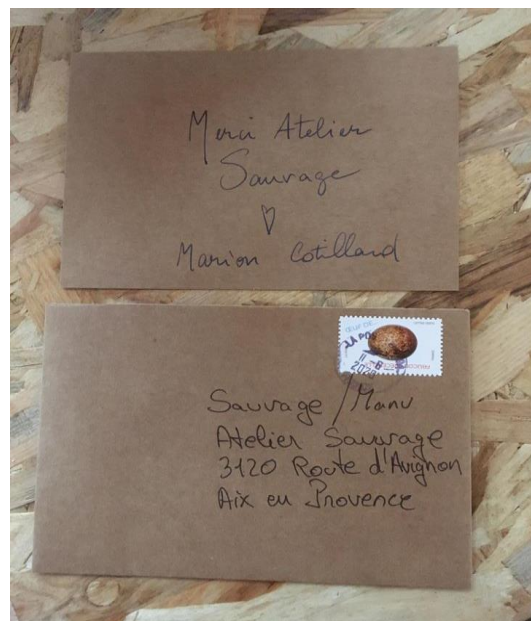 Merci Atelier
Sauvage
♡
Marion Cotillard
Sauvage / Manu
Atelier Sauvage
3120 Route d'Avignon
Aix en Provence